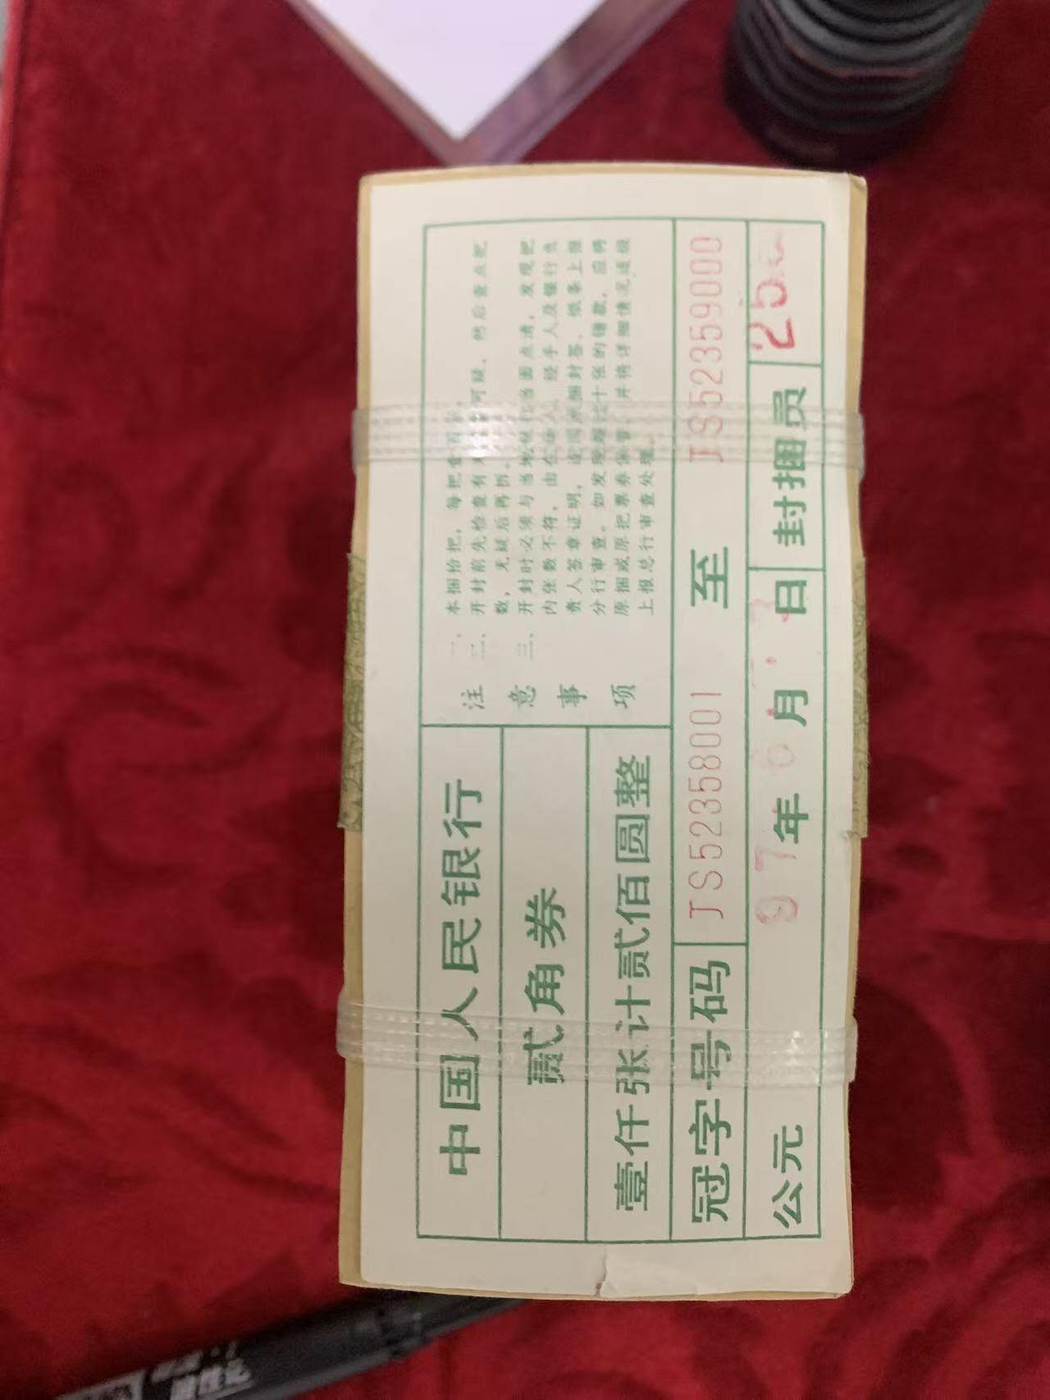 中国人民银行
贰角券
壹仟张计贰佰圆整
注意事项
一、本捆拾把,每把壹百张。
二、开封前先检查有无可疑,然后查点把
数,无疑后再拆。
三、开封时必须与当地银行当面点清,发现把
内张数不符,由在场人、经手人及银行负
责人签章证明,连同原捆封签、纸条上报
分行审查。如发现超过十张的错款,应将
原捆或原把票券保留,并将详细情况逐级
上报总行审查处理。
冠字号码 JS52358001 至 JS52359000
公元 97年6月 日 封捆员 25